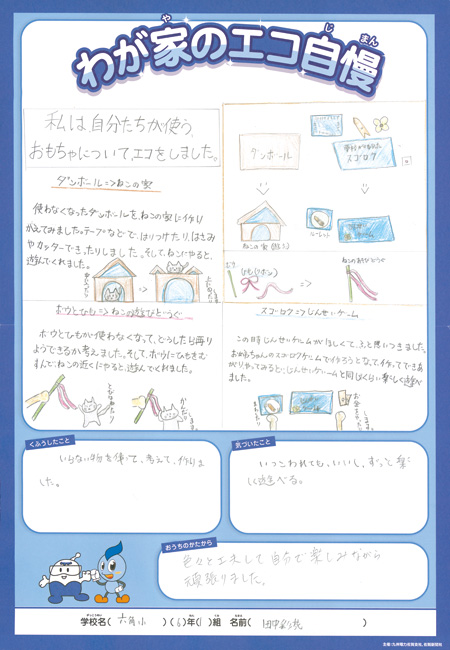 わが家のエコ自慢
や
じ まん
私は、自分たちが使う、
おもちゃについて、エコをしました。
ダンボール⇒ねこの家
使わなくなったダンボールを、ねこの家に作り
かえてみました。テープなどで、はりつけたり、はさみ
やカッターできったりしました。そして、ねこにやると、
遊んでくれました。
ダンボール
スゴロク
ねこの家
ルーレット
ひも(リボン)
ねこのあそびどうぐ
ボウとひも⇒ねこの遊びどうぐ
ボウとひもが使わなくなって、どうしたら再り
ようできるか考えました。そして、ボウにひもをむ
すんで、ねこの近くにやると、遊んでくれました。
スゴロク⇒じんせいゲーム
この時じんせいゲームがほしくて、ふと思いつきました。
お姉ちゃんのスゴロクゲームで作ろうとなって、作ってできあ
がりやってみると、じんせいゲームと同じくらい楽しく遊べ
ました。
くふうしたこと
いらない物を使って、考えて、作りま
した。
気づいたこと
いつこわれても、いいし、ずっと楽
しく遊べる。
おうちのかたから
色々と工夫して自分で楽しみながら
頑張りました。
学校名( 六角小 )(6)年(1)組 名前( 田中 )
主催/九州電力佐賀支社、佐賀新聞社